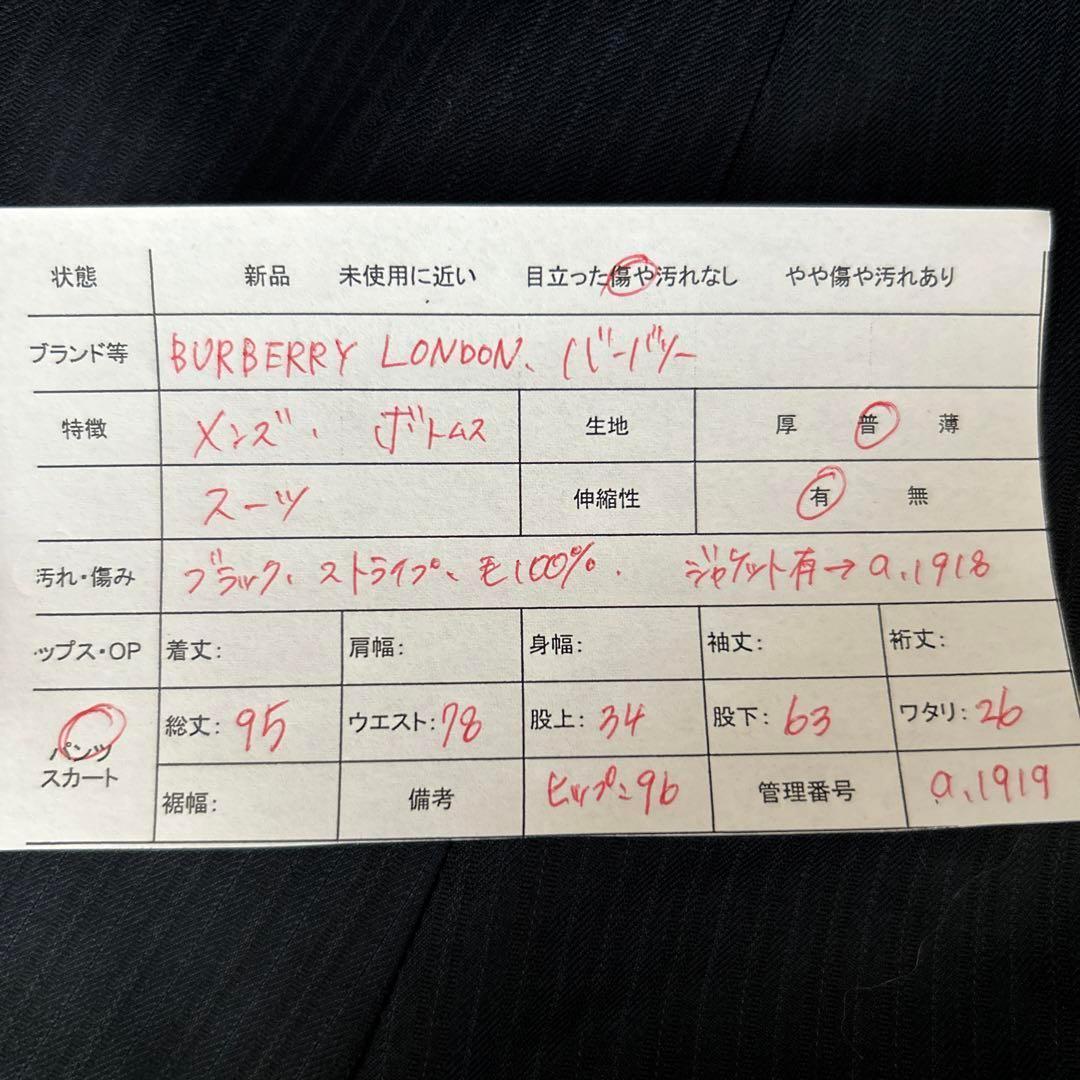 状態 新品 未使用に近い 目立った傷や汚れなし やや傷や汚れあり
ブランド等 BURBERRY LONDON、バーバリー
特徴 メンズ、 ボトムス 生地 厚 普 薄
スーツ 伸縮性 有 無
汚れ・傷み ブラック、ストライプ、毛100%. ジャケット有→a.1918
ップス・OP 着丈: 肩幅: 身幅: 袖丈: 裄丈:
パンツ 総丈:95 ウエスト:78 股上:34 股下:63 ワタリ:26
スカート
裾幅: 備考 ヒップ:96 管理番号 a.1919